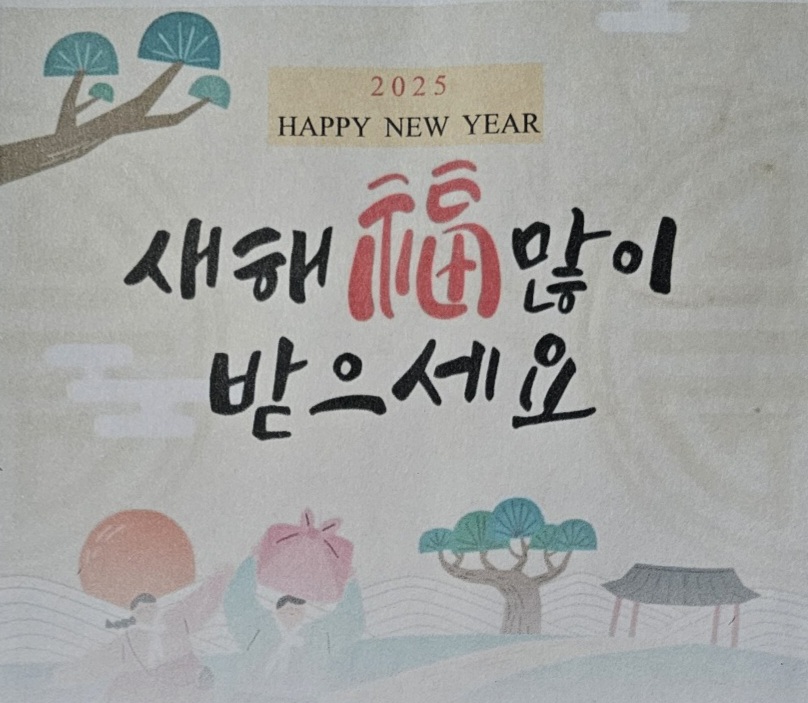 2025
HAPPY NEW YEAR
새해 福 많이
받으세요